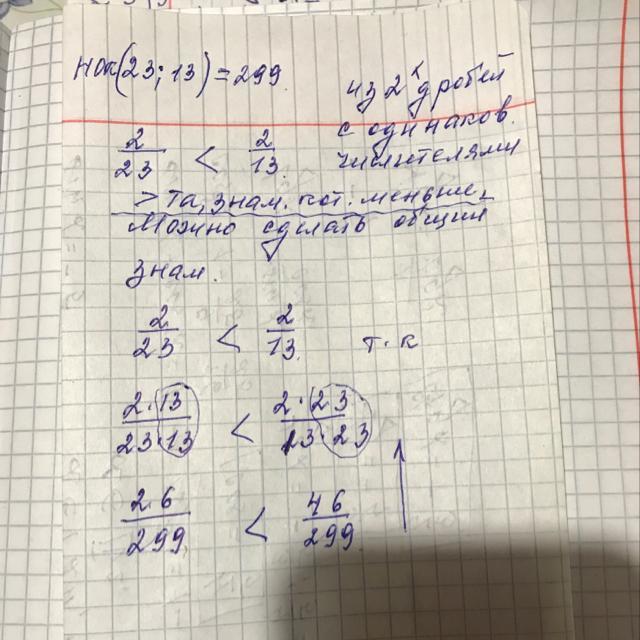 НОК(23; 13) = 299
из 2х дробей
с одинаков.
числителями
2/23 < 2/13.
> та, знам. кот. меньше.
Можно сделать общий
знам.
2/23 < 2/13. т. к
2·13/23·13 < 2·23/13·23
26/299 < 46/299